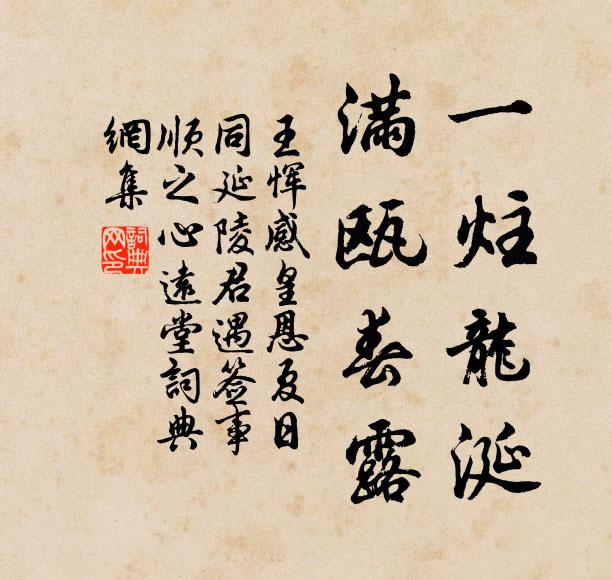 一炷龍涎
滿甌春露
王惲感皇恩夏日
同延陵君遇签事
順之心遠堂詞典
網集
詞典
网印